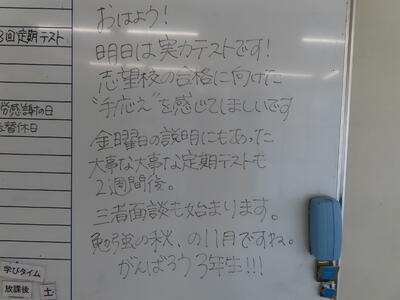 おはよう！
明日は実力テストです！
志望校の合格に向けた
"手応え"を感じてほしいです
金曜日の説明にもあった
大事な大事な定期テストも
2週間後。
三者面談も始まります。
勉強の秋、の11月ですね。
がんばろう3年生!!!
3回定期テスト
労感謝の日
振替休日
学びタイム
放課後
土